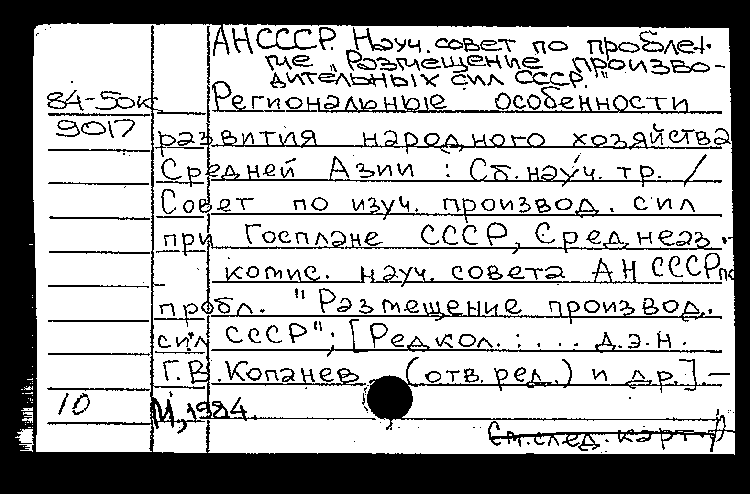 АН СССР. Науч. совет по пробле-
ме "Размещение произво-
дительных сил СССР."
84-50к Региональные особенности
9017 развития народного хозяйства
Средней Азии : Сб. науч. тр. /
Совет по изуч. производ. сил
при Госплане СССР, Среднеаз.
комис. науч. совета АН СССР по
пробл. "Размещение производ.
сил СССР"; [Редкол.: ... д.э.н.
Г.В. Копанев (отв. ред.) и др.]. –
10 М, 1984.
См. след. карт.